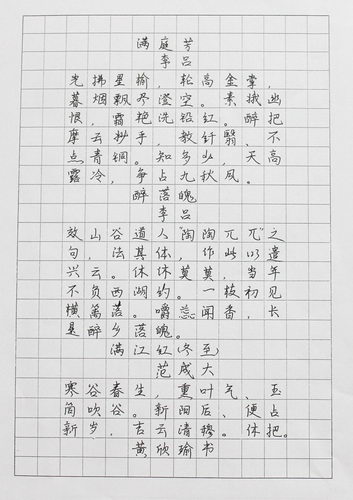 满庭芳
李吕
光拂星榆，轮高金掌，
暮烟飘尽澄空。素娥幽
恨，霜艳洗铅红。醉把
摩云妙手，教纤翳、不
点青铜。知多少，天高
露冷，争占九秋风。
醉落魄
李吕
效山谷道人“陶陶兀兀”之
句，法其体，作此以遣
兴云。休休莫莫，当年
不负西湖约。一枝初见
横篱落。嚼蕊闻香，长
是醉乡落魄。
满江红(冬至)
范成大
寒谷春生，熏叶气、玉
筒吹谷。新阳后、便占
新岁，吉云清穆。休把
黄欣瑜书